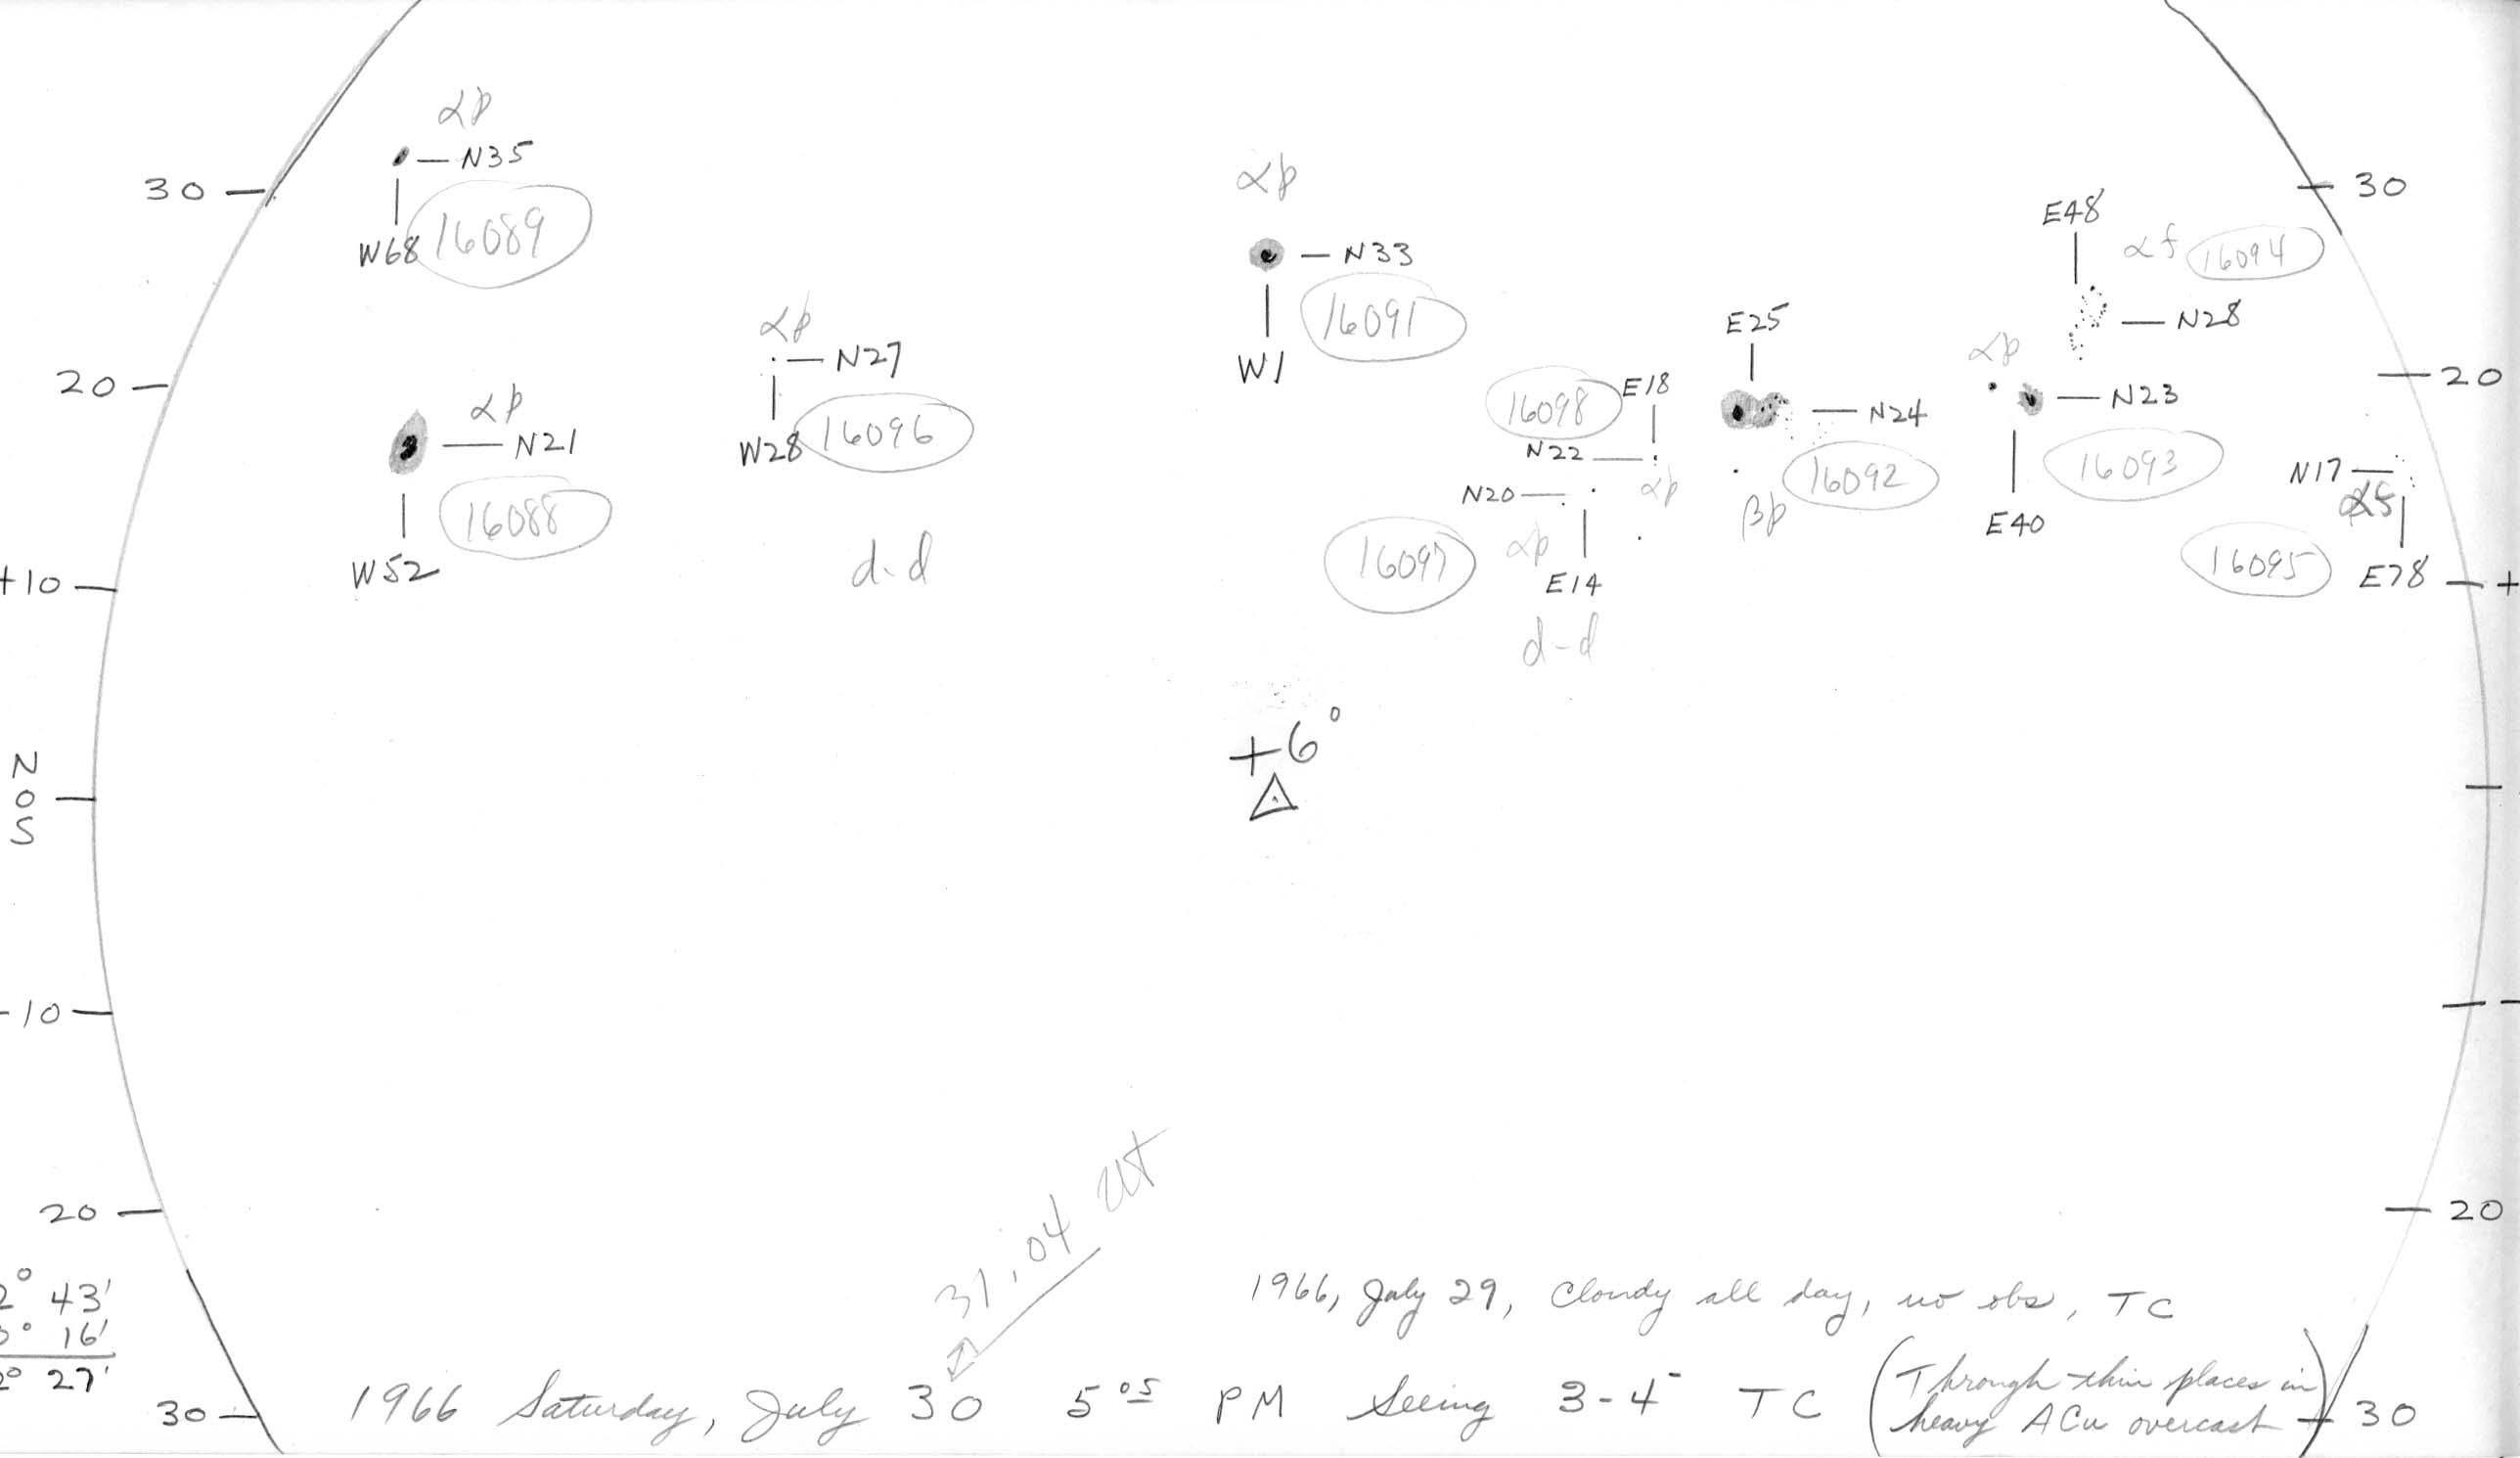 αp
N35
30
W68 16089
αp
N33
30
E48
αf 16094
16091
W1
αp
N27
E25
N28
αp
20
αp
N21
W28 16096
16098 E18
N24
N23
20
N22
16088
W52
N20
αp
16092
βp
16093
E40
N17
d-d
16097 αp
E14
16095 E78
+10
+
d-d
+6°
N
0
S
-10
20
20
31.04 UT
43'
16'
27'
1966, July 29, Cloudy all day, no obs, TC
30
1966 Saturday, July 30 5 05 PM Seeing 3-4- TC
(Through thin places in
heavy ACu overcast)
30